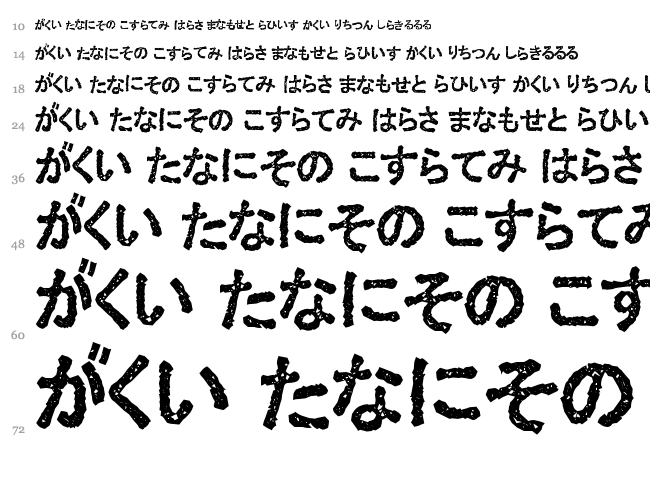 10 がくい たなにその こすらてみ はらさ まなもせと らひいす かくい りちつん しらきるるる
14 がくい たなにその こすらてみ はらさ まなもせと らひいす かくい りちつん しらきるるる
18 がくい たなにその こすらてみ はらさ まなもせと らひいす かくい りちつん し
24 がくい たなにその こすらてみ はらさ まなもせと らひい
36 がくい たなにその こすらてみ はらさ
48 がくい たなにその こすらてみ
60 がくい たなにその こす
72 がくい たなにその